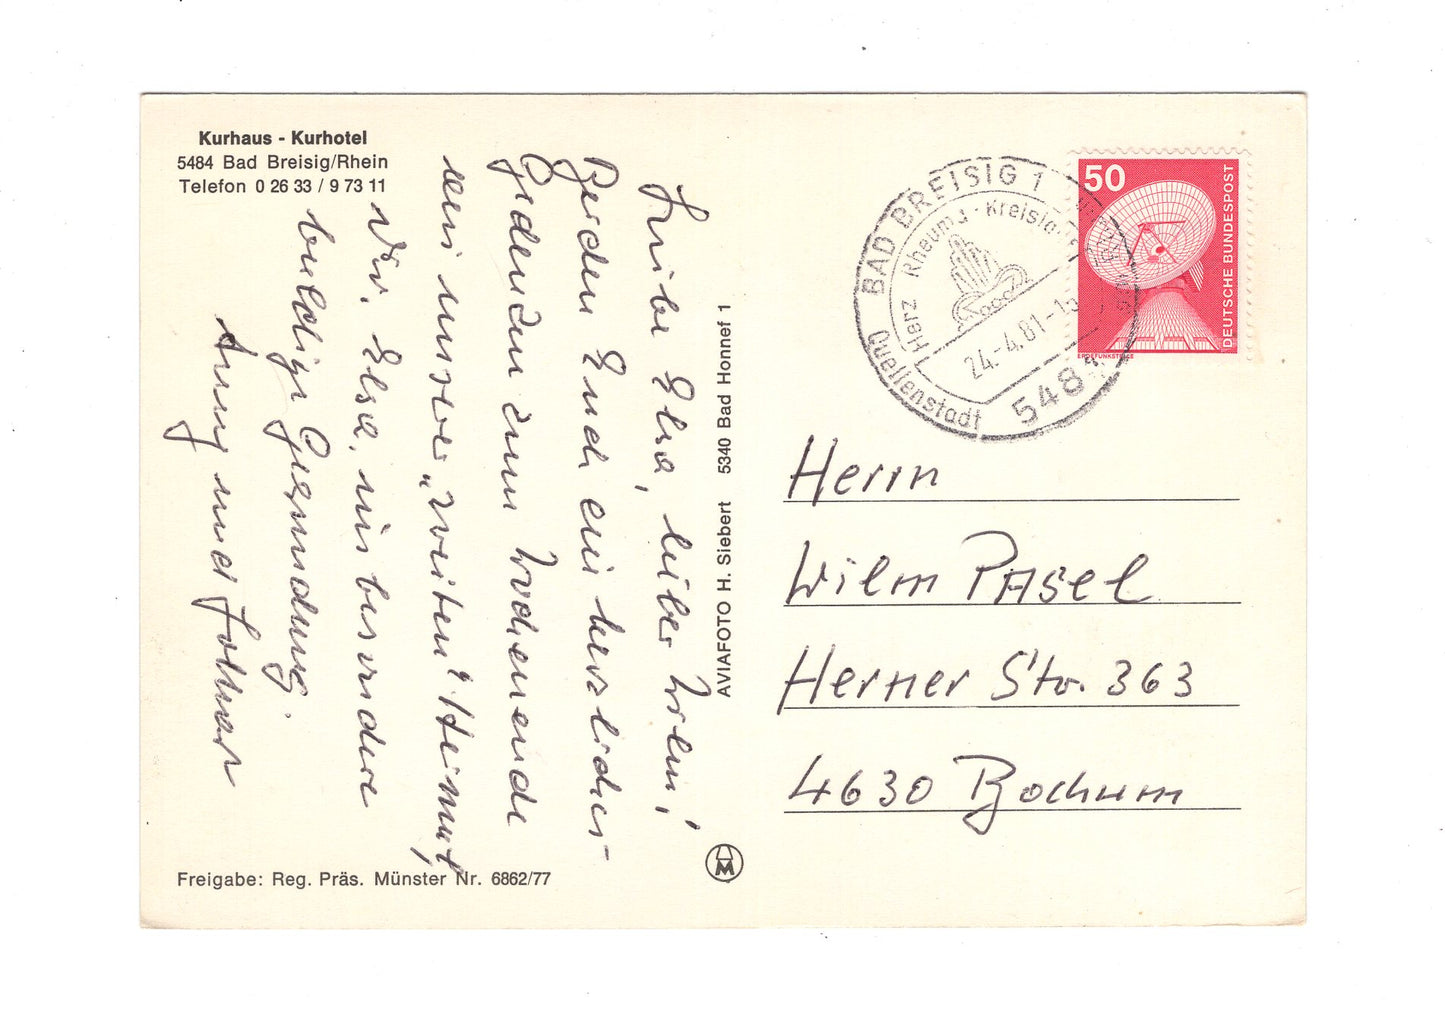 Kurhaus - Kurhotel
5484 Bad Breisig/Rhein
Telefon 0 26 33 / 9 73 11
Liebe Elsa, lieber Wilm!
Beiden Euch ein herzliches
Gedenken zum Wochenende
aus unserer „zweiten" Heimat,
Dir, Elsa, insbesondere
baldige Gesundung.
Anny und Lothar
Freigabe: Reg. Präs. Münster Nr. 6862/77
AVIAFOTO H. Siebert 5340 Bad Honnef 1
M
BAD BREISIG 1
Herz Rheuma - Kreislauf
24.-4.81-15
Quellenstadt
5484
50
DEUTSCHE BUNDESPOST
ERDEFUNKSTELLE
Herrn
Wilm PASEL
Herner Str. 363
4630 Bochum